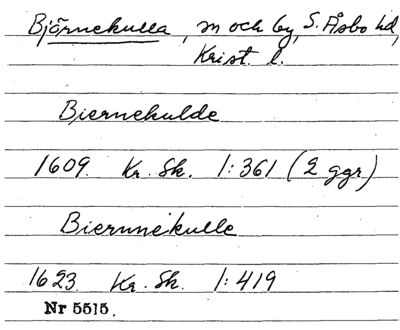 Björnekulla, sn och by, S. Åsbo hd,
Krist. l.
Biernekulde
1609. Kr. Sk. 1:361 (2 ggr)
Biernnekulle
1623. Kr. Sk. 1:419
Nr 5515.